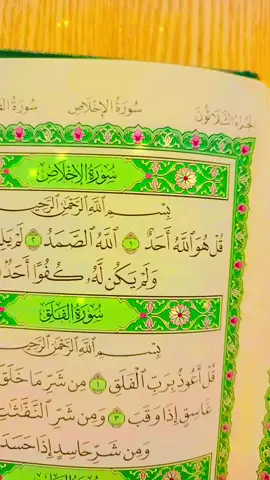 سُورَةُ الإِخْلَاصِ الجُزْءُ الثَّلَاثُونَ
سُورَةُ الإِخْلَاصِ
بِسْمِ اللَّهِ الرَّحْمَٰنِ الرَّحِيمِ
قُلْ هُوَ اللَّهُ أَحَدٌ ١ اللَّهُ الصَّمَدُ ٢ لَمْ
وَلَمْ يَكُن لَّهُ كُفُوًا أَحَدٌ
سُورَةُ الفَلَقِ
بِسْمِ اللَّهِ الرَّحْمَٰنِ الرَّحِيمِ
قُلْ أَعُوذُ بِرَبِّ الْفَلَقِ ١ مِن شَرِّ مَا خَلَقَ
غَاسِقٍ إِذَا وَقَبَ ٣ وَمِن شَرِّ النَّفَّاثَاتِ
وَمِن شَرِّ حَاسِدٍ إِذَا حَسَدَ